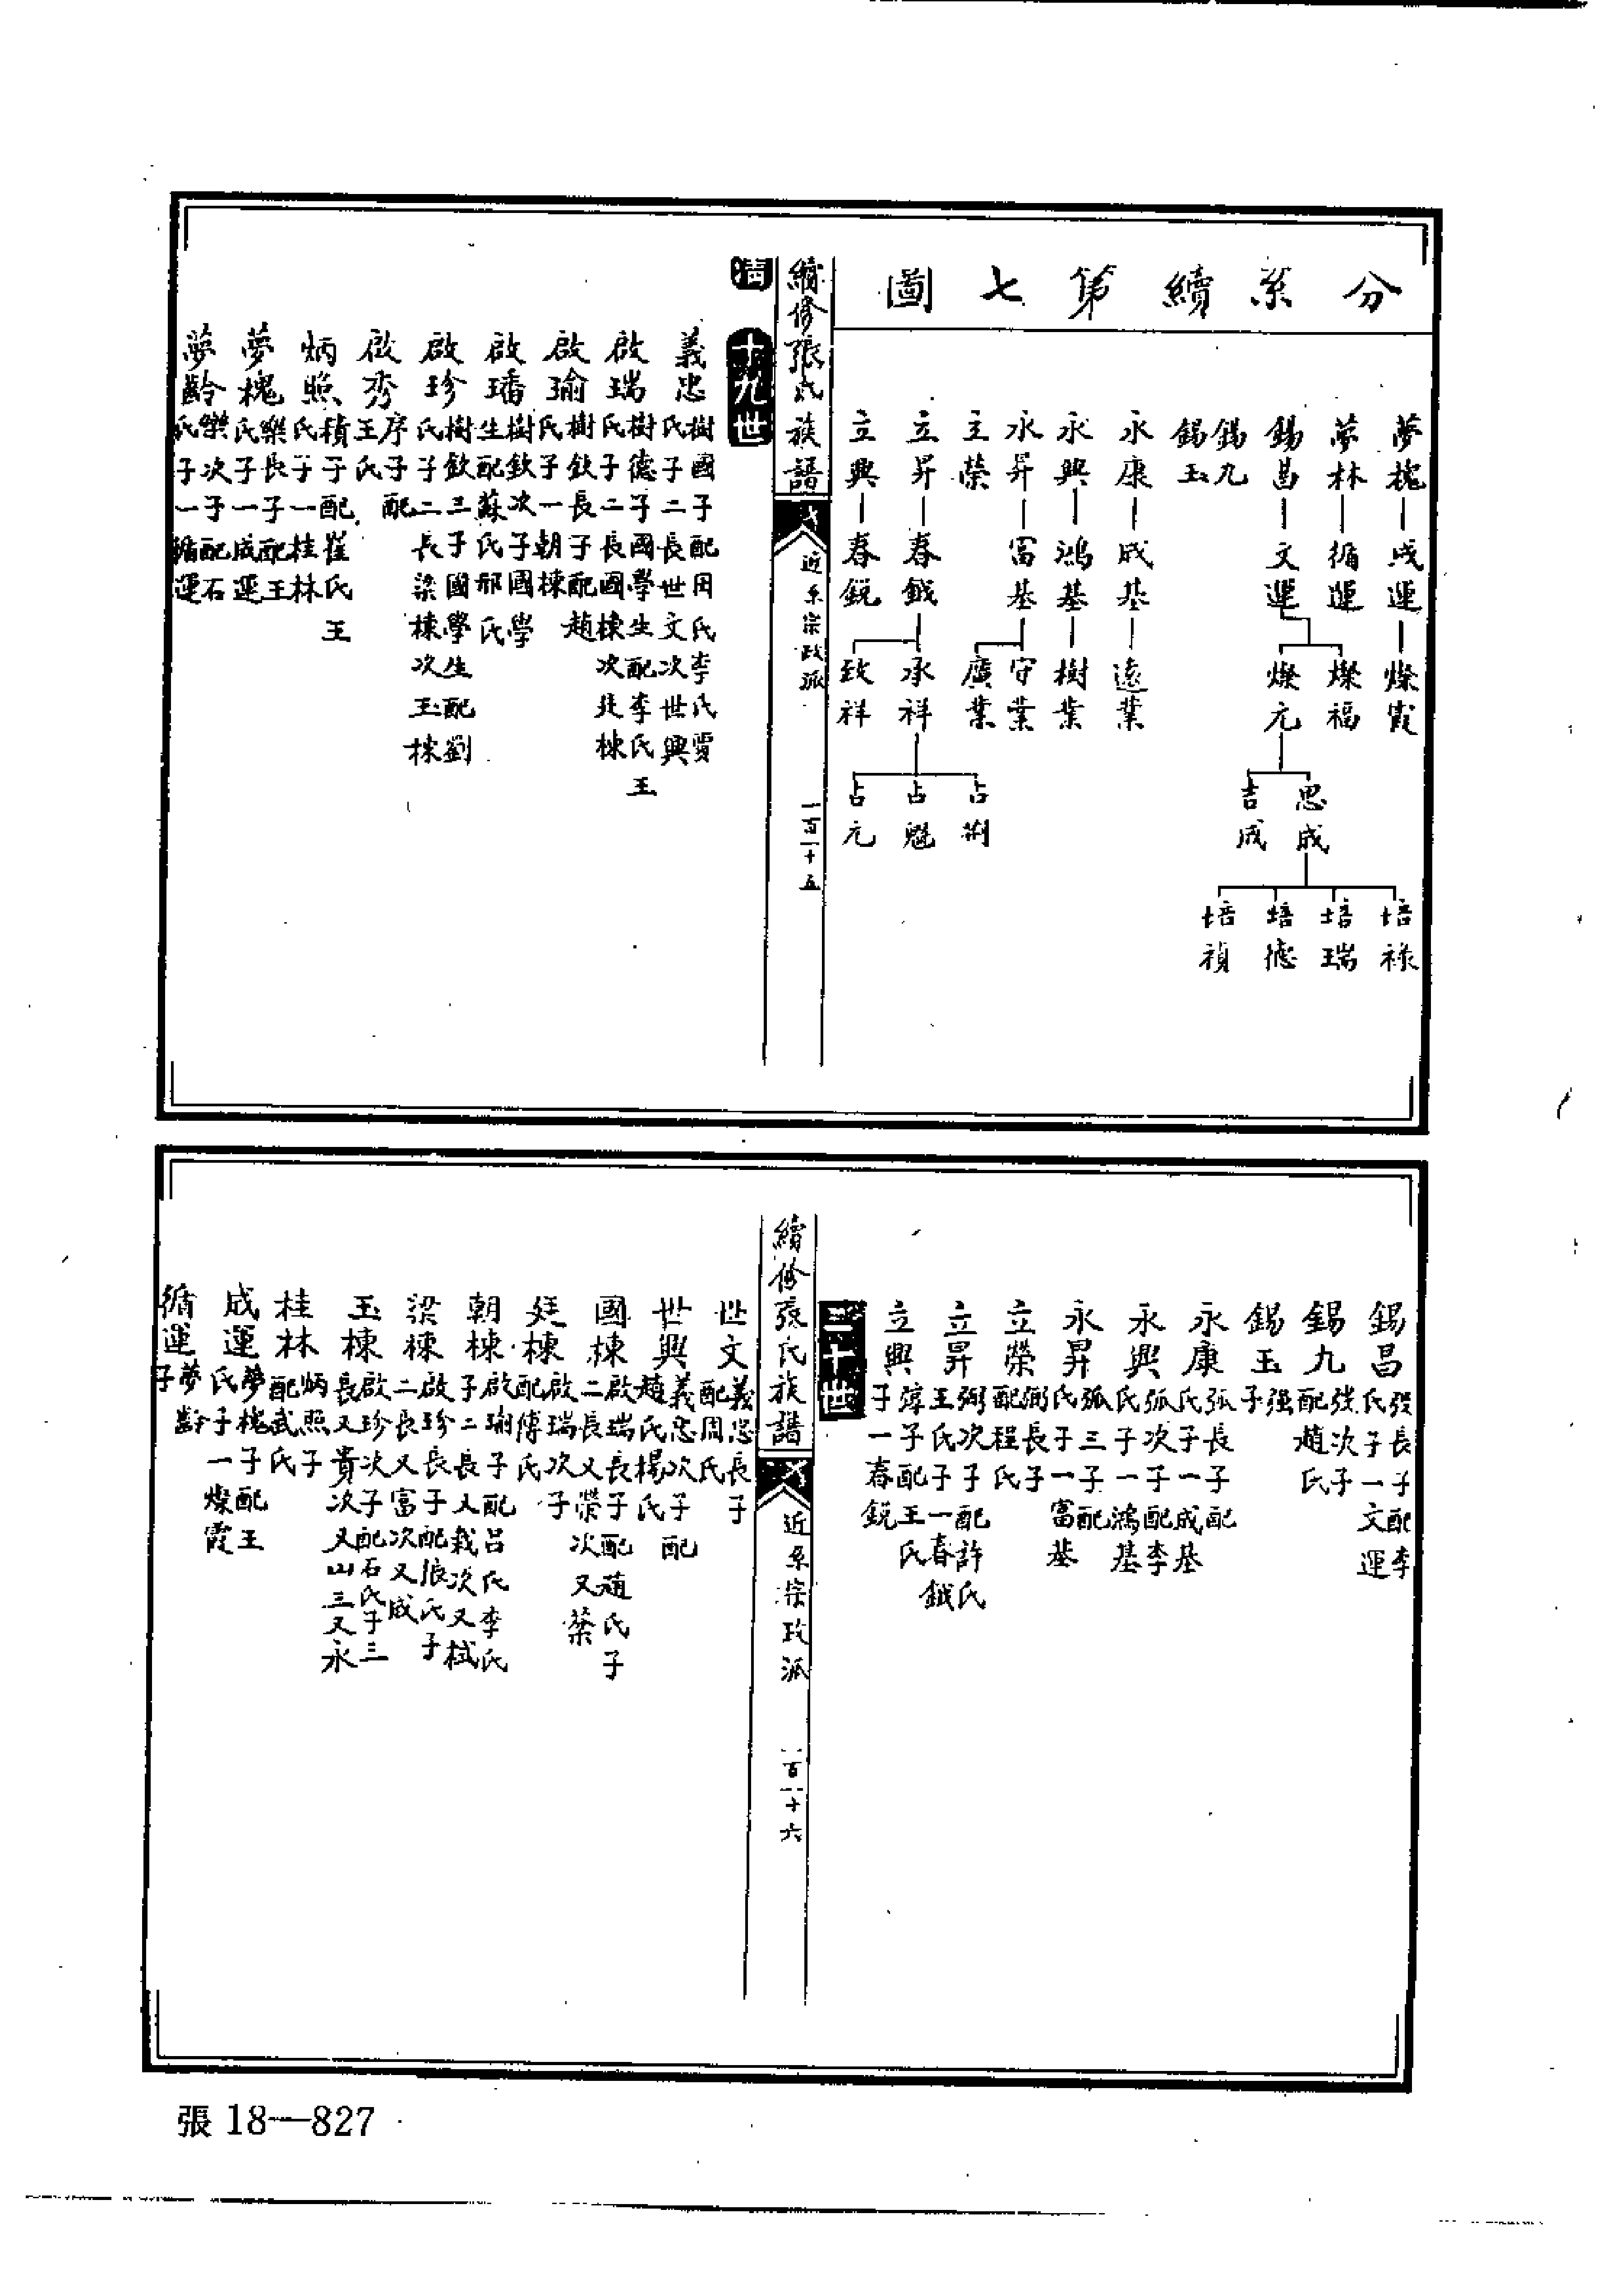 分系續第七圖
夢槐 成運 燦霞
夢林 循運
錫昌 文運 燦福 燦元 思成 吉成 培祿 培瑞 培德 培禎
錫九
錫玉
永康 成基 遠業
永興 鴻基 樹業
永昇 富基 守業 廣業
立榮
立昇 春鉞 承祥 致祥 占荊 占魁 占元
立興 春銳
續修張氏族譜 近系宗政派 一百一十五
清 十九世
義忠 樹國子配田氏李氏賈氏子二長世文次世興
啟瑞 樹德子國學生配李氏王氏子二長國棟次廷棟
啟瑜 樹欽長子配趙氏子一朝棟
啟璠 樹欽次子國學生配蘇氏邢氏
啟珍 樹欽三子國學生配劉氏子二長梁棟次玉棟
啟秀 序子配王氏
炳照 積子配崔氏王氏子一桂林
夢槐 樂長子配王氏子一成運
夢齡 樂次子配石氏子一循運
錫昌 發長子配李氏子一文運
錫九 發次子配趙氏
錫玉 強子
永康 弧長子配氏子一成基
永興 弧次子配李氏子一鴻基
永昇 弧三子配氏子一富基
立榮 弼長子配程氏
立昇 弼次子配許氏王氏子一春鉞
立興 子配王氏子一春銳
二十世
續修張氏族譜 近系宗政派 一百一十六
世文 義忠長子配周氏
世興 義忠次子配趙氏楊氏
國棟 啟瑞長子配趙氏子二長又榮次又葉
廷棟 啟瑞次子配傅氏
朝棟 啟瑜子配呂氏李氏子二長又栽次又栻
梁棟 啟珍長子配張氏子二長又富次又成
玉棟 啟珍次子配石氏子三長又貴次又山三又永
桂林 炳照子配武氏
成運 夢槐子配王氏子一燦霞
循運 夢齡子
張18—827